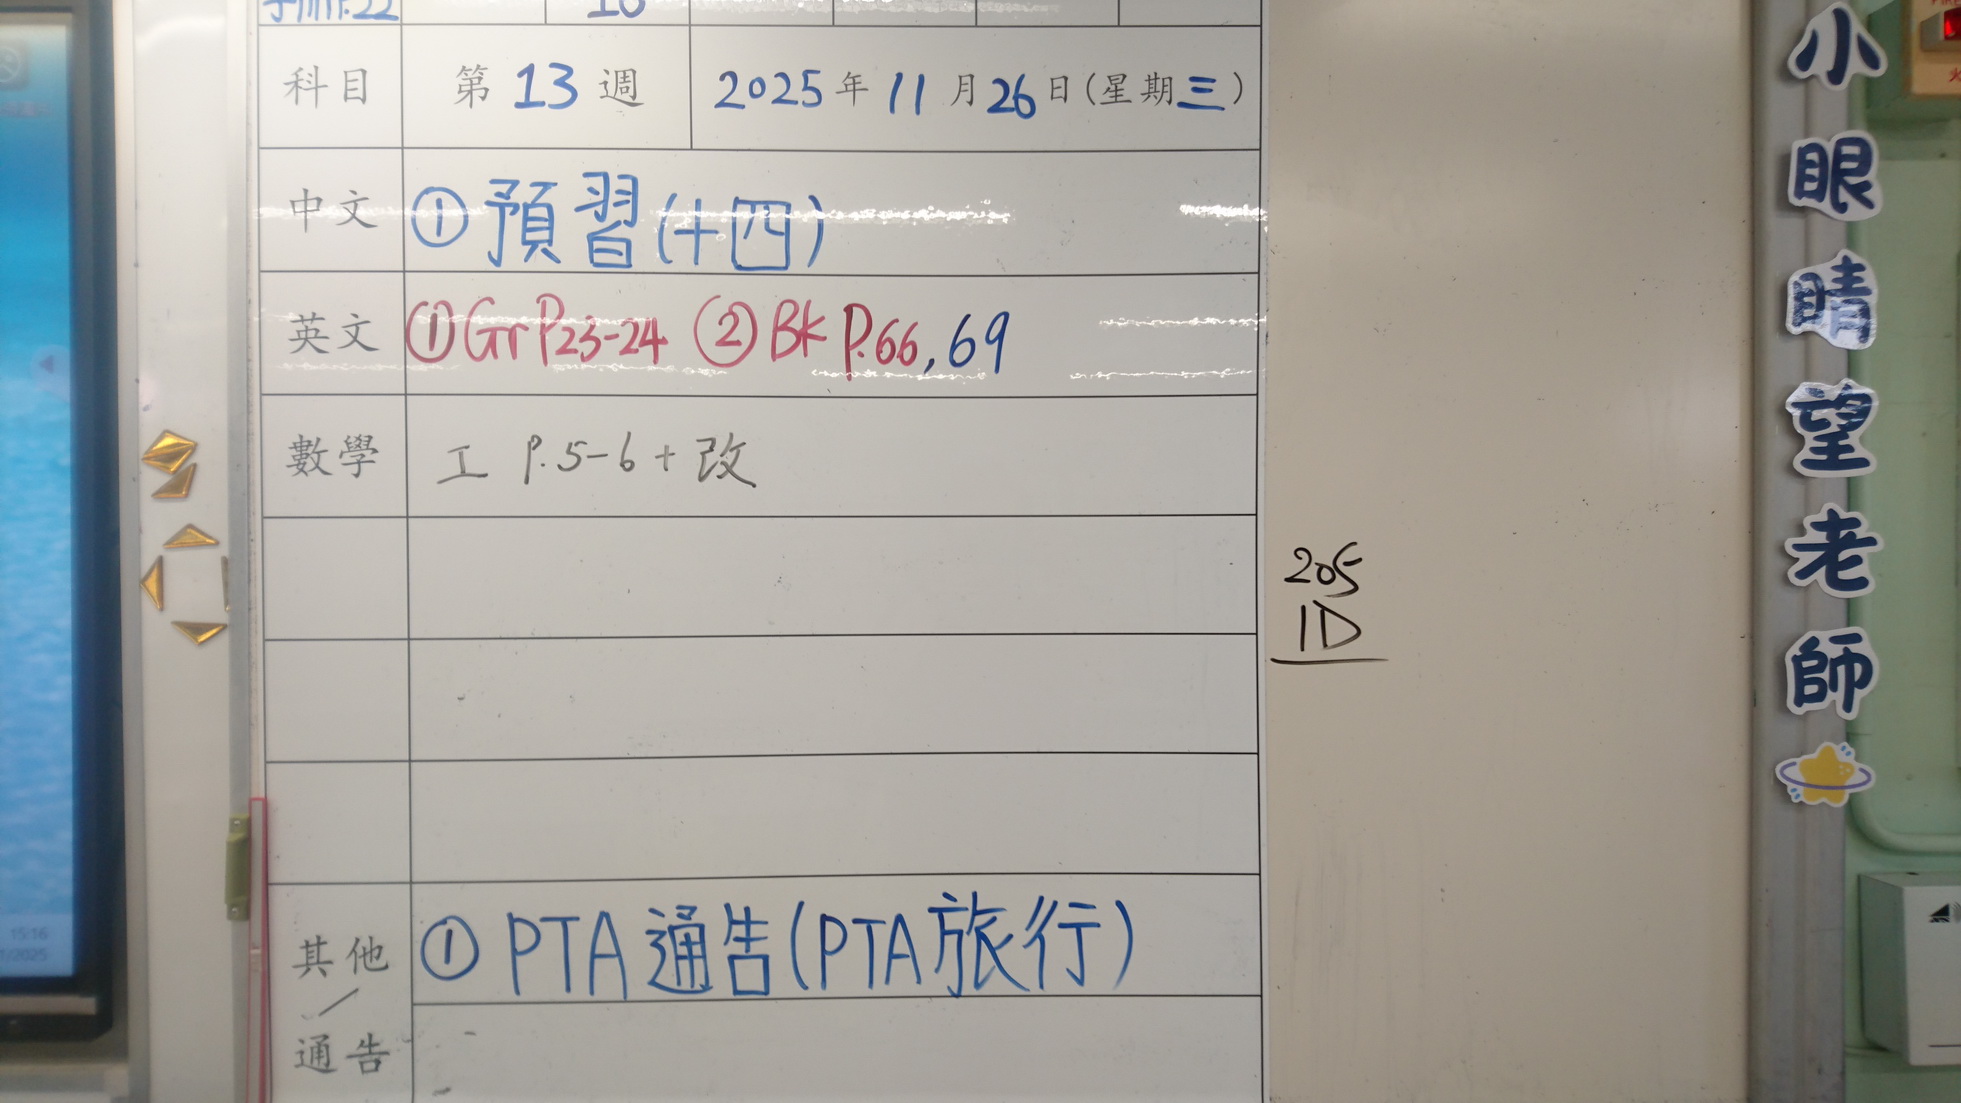 科目 第13週 2025年11月26日(星期三)
中文 ①預習(十四)
英文 ①Gr P23-24 ②Bk P.66,69
數學 工 P.5-6+改
其他/通告 ①PTA通告(PTA旅行)
205
1D
小眼睛望老師
15:16